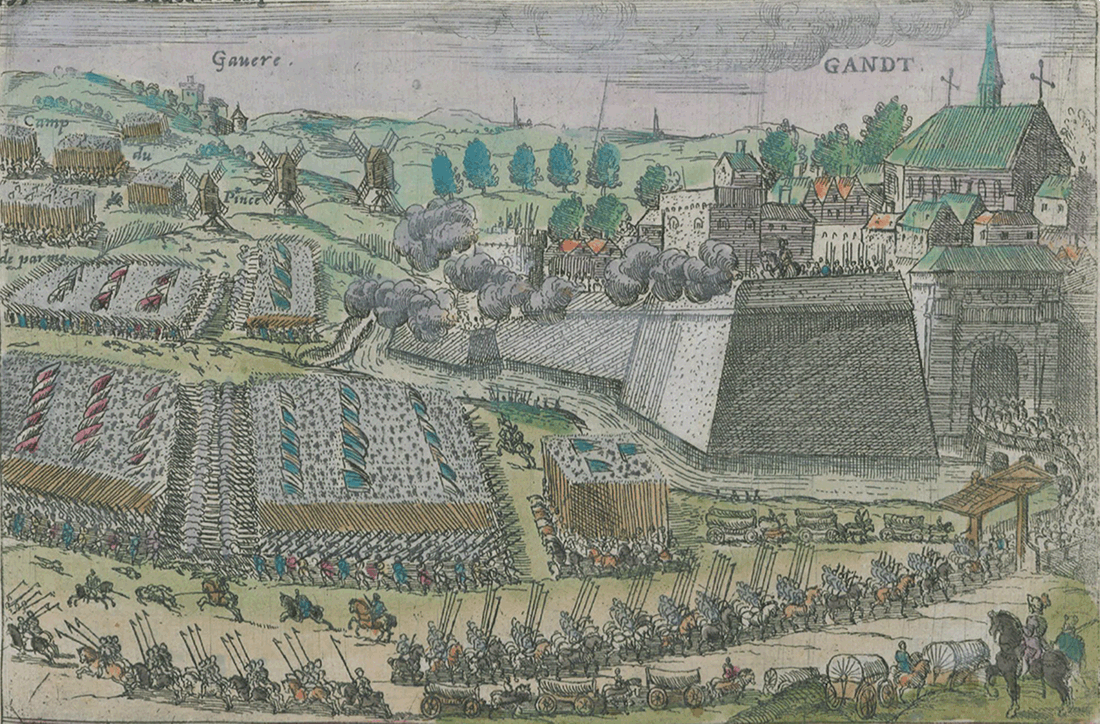 Gavere.
GANDT
Camp
du
Prince
de parme